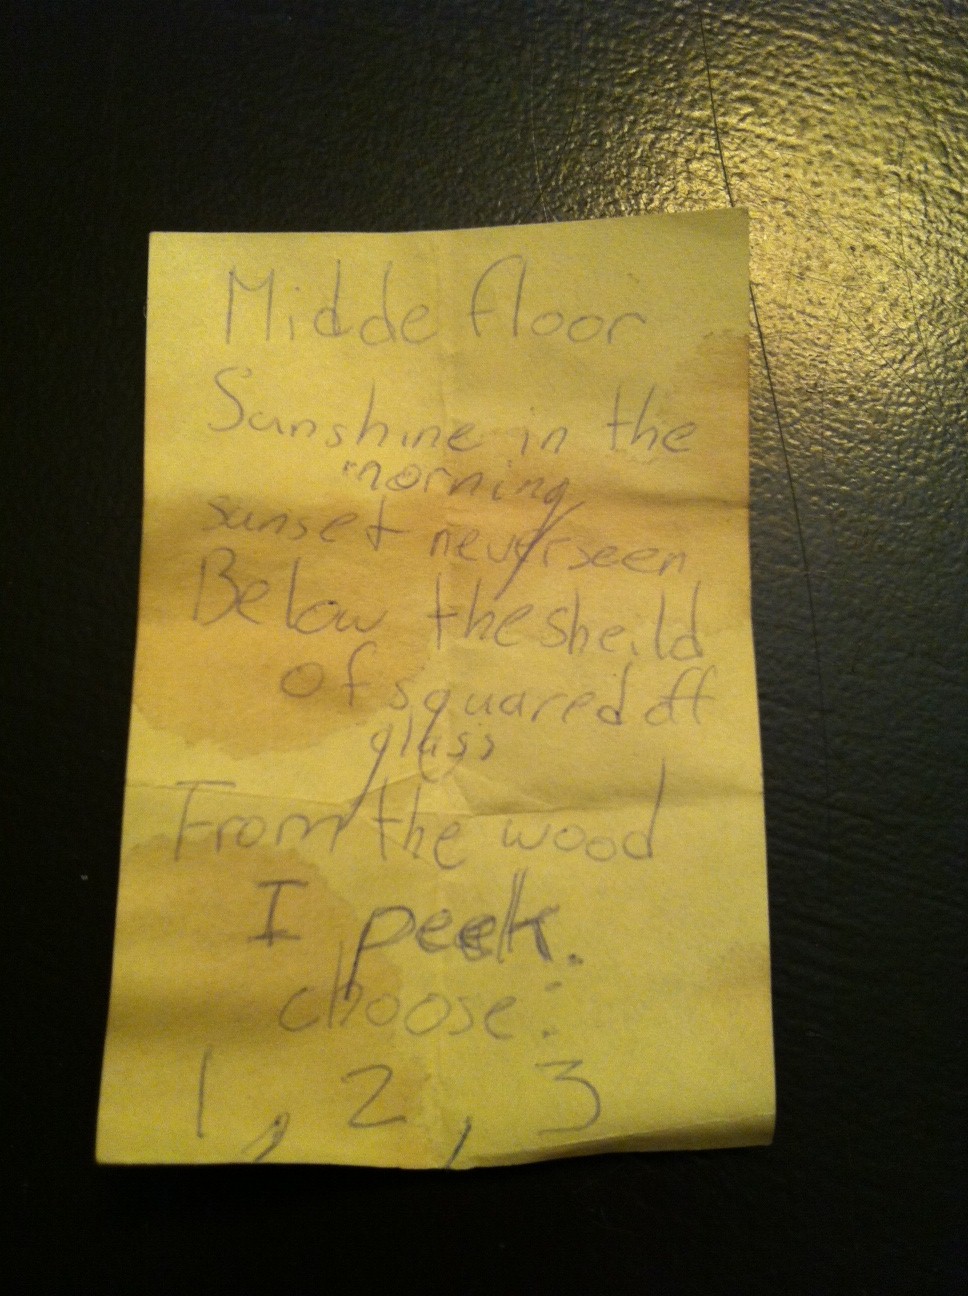 Midde floor
Sunshine in the
morning,
sunset never seen
Below the sheild
of squared off
glass
From the wood
I peek.
choose:
1, 2, 3